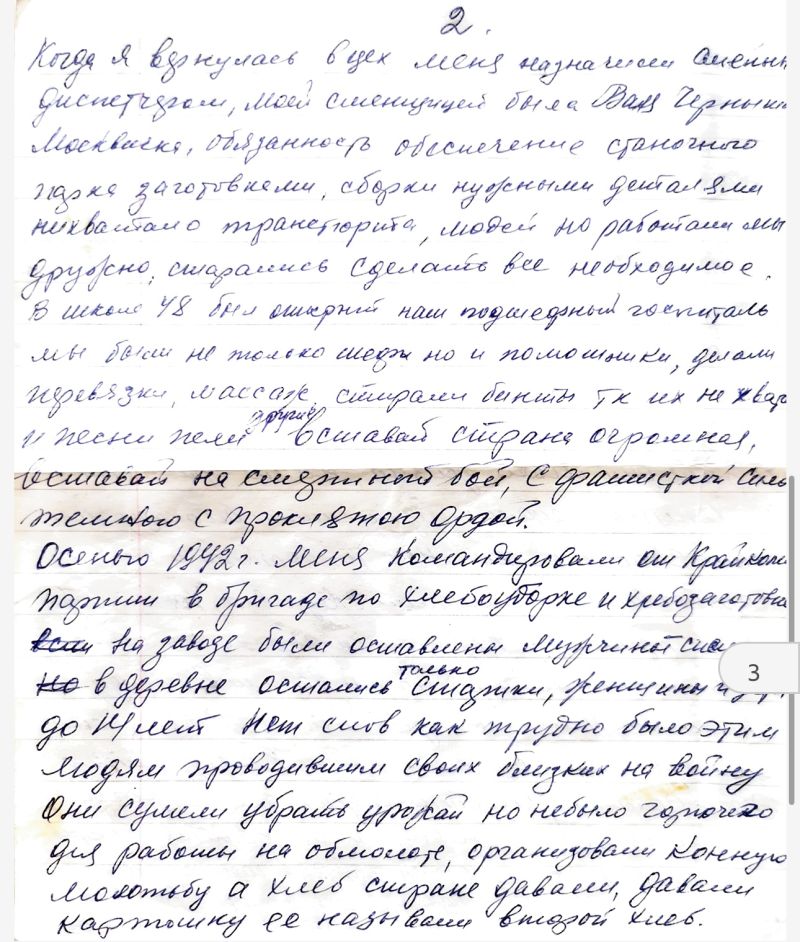 2.
Когда я вернулась в цех меня назначили сменны
диспетчером, моей сменщицей была Валя Черных
Москвичка, обязанность обеспечение станочного
парка заготовками, сборки нужными деталями
нехватало транспорта, людей но работали мы
дружно, старались сделать все необходимое.
В школе 48 был открыт наш подшефный госпиталь
мы были не только шефы но и помошники, делали
перевязки, массаж, стирали бинты тк их не хват
и песни пели другие Вставай страна огромная,
вставай на смертный бой, С фашисткой силь
темною с проклятою Ордой.
Осенью 1942 г. меня командировали от Крайкома
партии в бригаде по хлебоуборке и хлебозаготовка
на заводе были оставлены мужчины
в деревне остались только Старики, женщины
до 14 лет Нет слов как трудно было этим
людям проводившим своих близких на войну
Они сумели убрать урожай но небыло горючего
для работы на обмолоте, организовали конную
молотьбу а хлеб стране давали, давали
картошку ее называли второй хлеб.
3